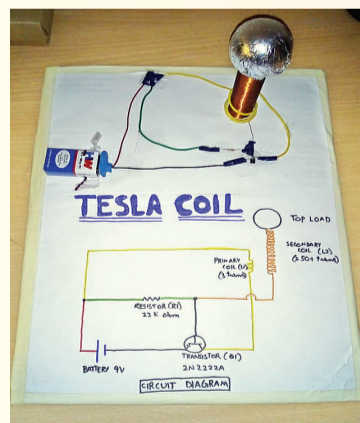 HW
TESLA COIL
TOP LOAD
SECONDARY
COIL (L2)
PRIMARY
COIL (L1)
(3 turns)
RESISTOR (R1)
22 K ohm
TRANSISTOR (Q1)
2N2222A
BATTERY 9V
CIRCUIT DIAGRAM